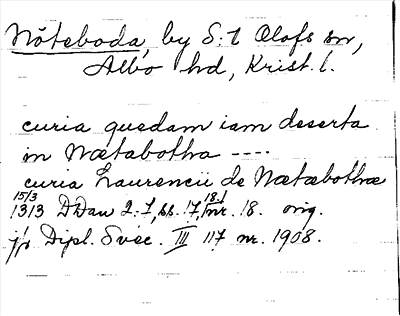 Nöteboda, by S:t Olofs sn,
Albo hd, Krist. l.
curia quedam iam deserta
in Nætabotha ----
curia Laurencii de Nætæbothæ
15/3 1313 DDan 2:7, s. 17, nr. 18. orig.
jfr Dipl. Svec. III 117 nr. 1908.